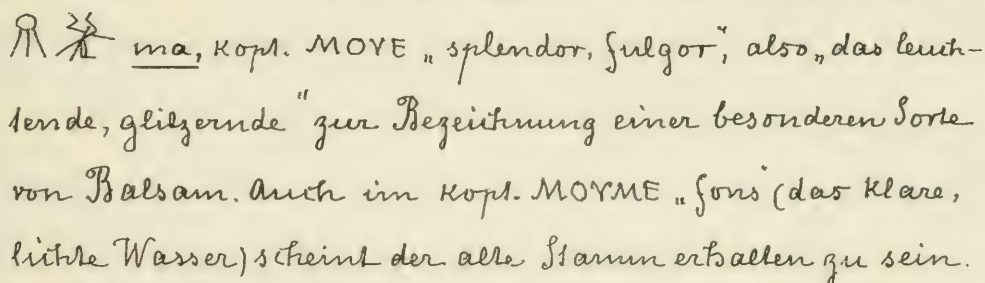 ma, kopt. MOYE „splendor, fulgor”, also „das leuch-
tende, glitzernde” zur Bezeichnung einer besonderen Sorte
von Balsam. Auch im kopt. MOYME „fons” (das klare,
lichte Wasser) scheint der alte Stamm erhalten zu sein.